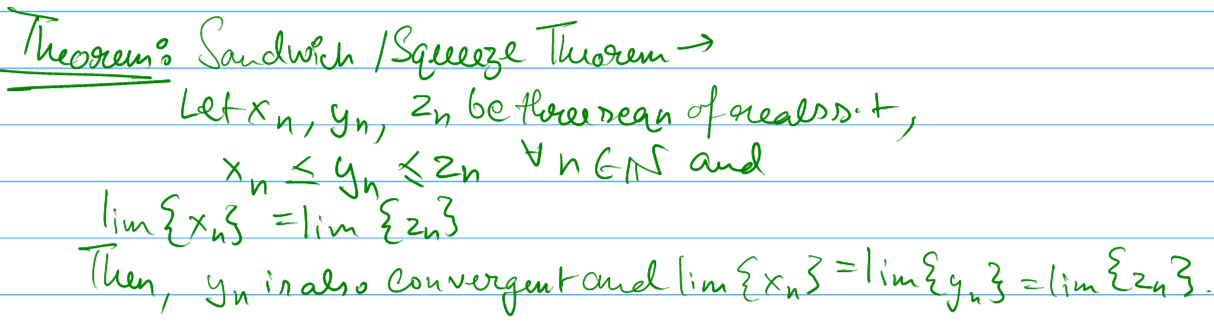 Theorem: Sandwich / Squeeze Theorem →
Let xₙ, yₙ, zₙ be three seqn of reals s.t,
xₙ ≤ yₙ ≤ zₙ ∀ n ∈ ℕ and
lim {xₙ} = lim {zₙ}
Then, yₙ is also convergent and lim {xₙ} = lim {yₙ} = lim {zₙ}.